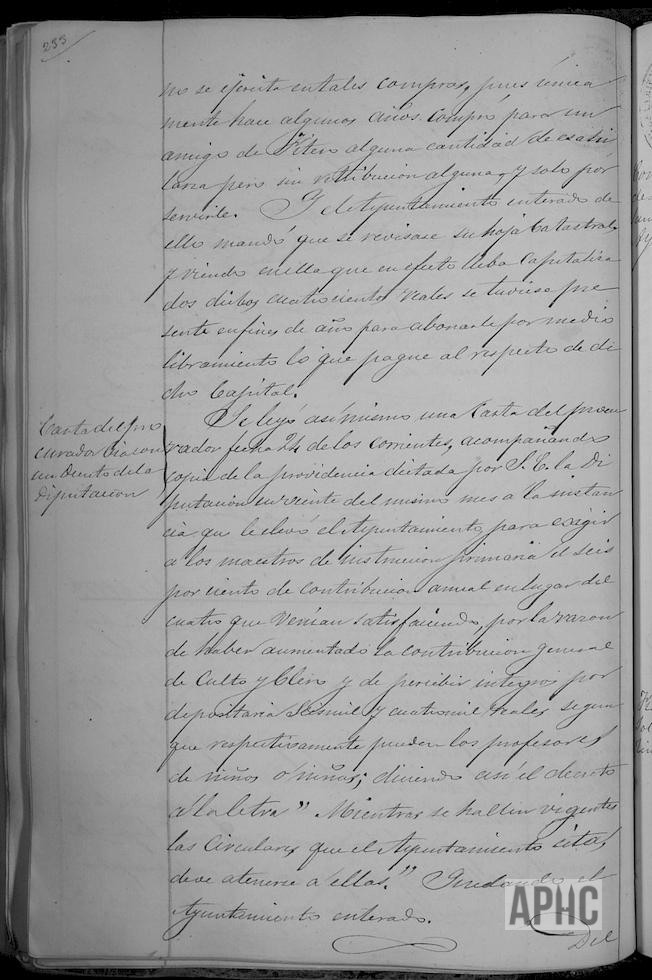 233
no se ejercita en tales compras, pues única
mente hace algunos años compró para un
amigo de Fitero alguna cantidad de esa hi
laza pero sin retribucion alguna, y solo por
servirle. Y el Ayuntamiento enterado de
ello mandó que se revisase su hoja Catastral
y viendo en ella que en efecto lleba Capitaliza
dos dichos cuatrocientos reales se tuviese pre
sente en fines de año para abonarle por medio
libramiento lo que pague al respecto de di
cho Capital.
Carta del pro
curador con
un Decreto de la
Diputacion
Se leyó asi mismo una Carta del procu
rador fecha 24 de los corrientes, acompañando
copia de la providencia dictada por S. E. la Di
putacion en veinte del mismo mes a la instan
cia que le elevó el Ayuntamiento para exigir
a los maestros de instruccion primaria el seis
por ciento de contribucion anual en lugar del
cuatro que venian satisfaciendo, por la razon
de haber aumentado la contribucion general
de Culto y Clero y de percibir integros por
depositaria seis mil y cuatro mil reales segun
que respectivamente pueden los profesores
de niños ó niñas; diciendo asi el decreto
a la letra " Mientras se hallen vigentes
las Circulares que el Ayuntamiento cita,
deve atenerse a ellas." Quedando el
Ayuntamiento enterado.
Del
APHC